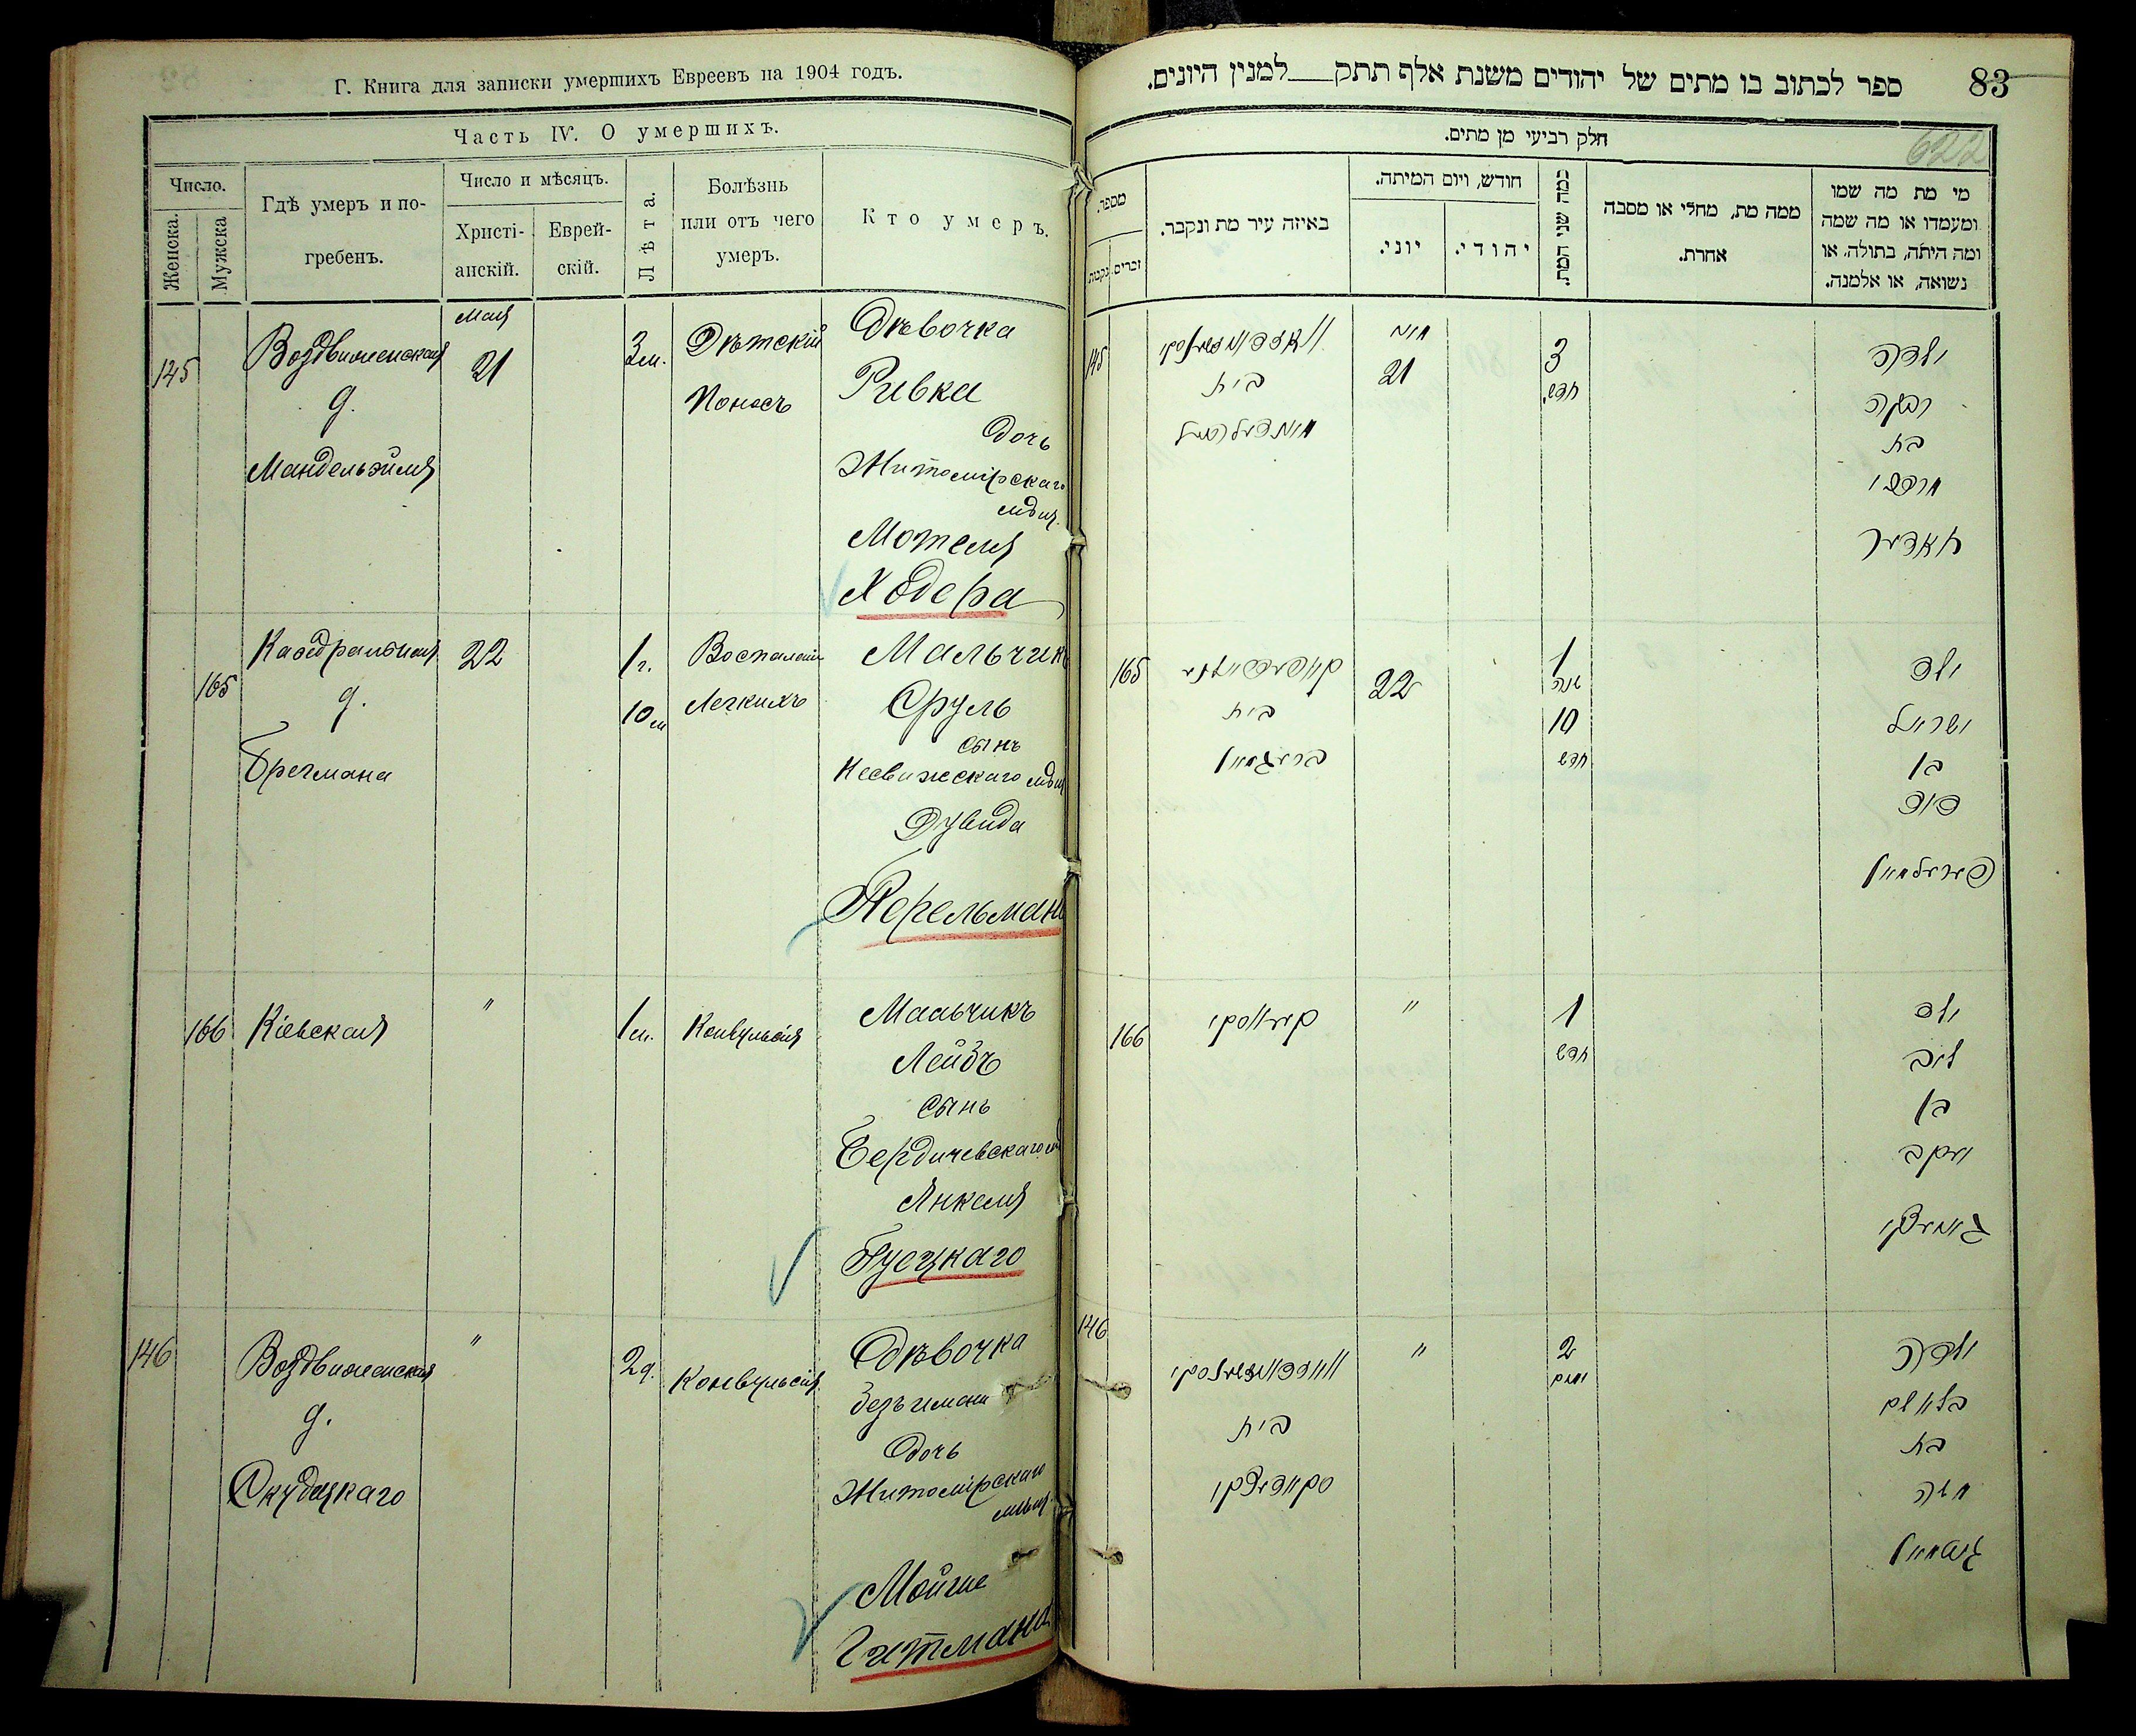 Г. Книга для записки умершихъ Евреевъ на 1904 годъ.
Часть IV. О умершихъ.
Число.
Женска.
Мужска
Гдѣ умеръ и по-
гребенъ.
Число и мѣсяцъ.
Христі-
анскій.
Еврей-
скій.
Лѣта.
Болѣзнь
или отъ чего
умеръ.
Кто умеръ.
145
Воздвиженская
д.
Мандельэйля
Мая
21
3 м.
Дѣтскій
Поносъ
Дѣвочка
Ривка
дочь
Житомірскаго
мѣщ.
Мотеля
Ходера
165
д.
Брегмана
22
1 г.
10 м
Легкихъ
Мальчикъ
Сруль
сынъ
Несвижскаго мѣщ
Дувида
Перельмана
166
Кіевская
"
1 м.
Конвульсія
Мальчикъ
Лейбъ
сынъ
Бердичевскаго
Янкеля
146
Воздвиженская
д.
"
2 д.
Конвульсія
Дѣвочка
безъ имени
дочь
Житомірскаго
мѣщ.
Мойше
Гитмана
83
ספר לכתוב בו מתים של יהודים משנת אלף תתק למנין היונים.
622
חלק רביעי מן מתים.
מספר.
נקבות
זכרים
באיזה עיר מת ונקבר.
חודש, ויום המיתה.
יוני.
יהודי.
כמה שני המת.
ממה מת, מחלי או מסבה
אחרת.
מי מת מה שמו
ומעמדו או מה שמה
ומה היתה, בתולה, או
נשואה, או אלמנה.
145
בית
מאי
21
3
חדש
ילדה
רבקה
בת
מרדכי
חאדער
165
בית
ברעגמאן
22
1
שנה
10
חדש
ילד
ישראל
בן
דוד
פערעלמאן
166
קיעווסקי
"
1
חדש
ילד
ליב
בן
יעקב
146
בית
"
2
ימים
ילדה
בלי שם
בת
משה
גיטמאן